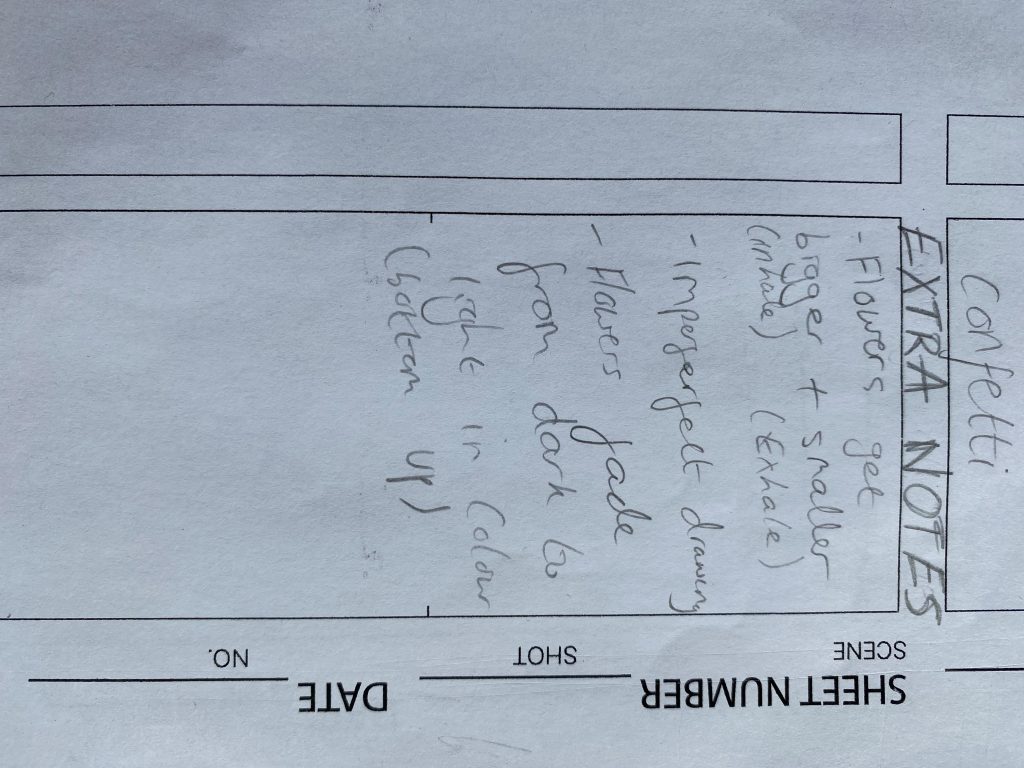 Confetti
EXTRA NOTES
- Flowers get
bigger + smaller
(inhale) (Exhale)
- Imperfect drawing
- Flowers fade
from dark to
light in Colour
(bottom up)
SHEET NUMBER
SCENE
SHOT
DATE
NO.